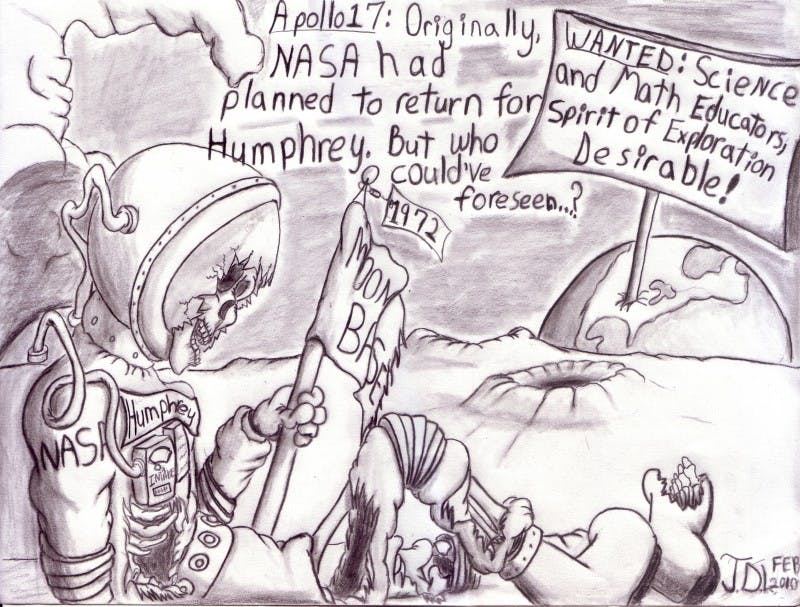 Apollo17: Originally,
NASA had
planned to return for
Humphrey. But who
could've
foreseen...?
WANTED: Science
and Math Educators,
Spirit of Exploration
Desirable!
1972
MOON
BASE
Humphrey
NASA
INTAKE
J.D.
FEB
2010